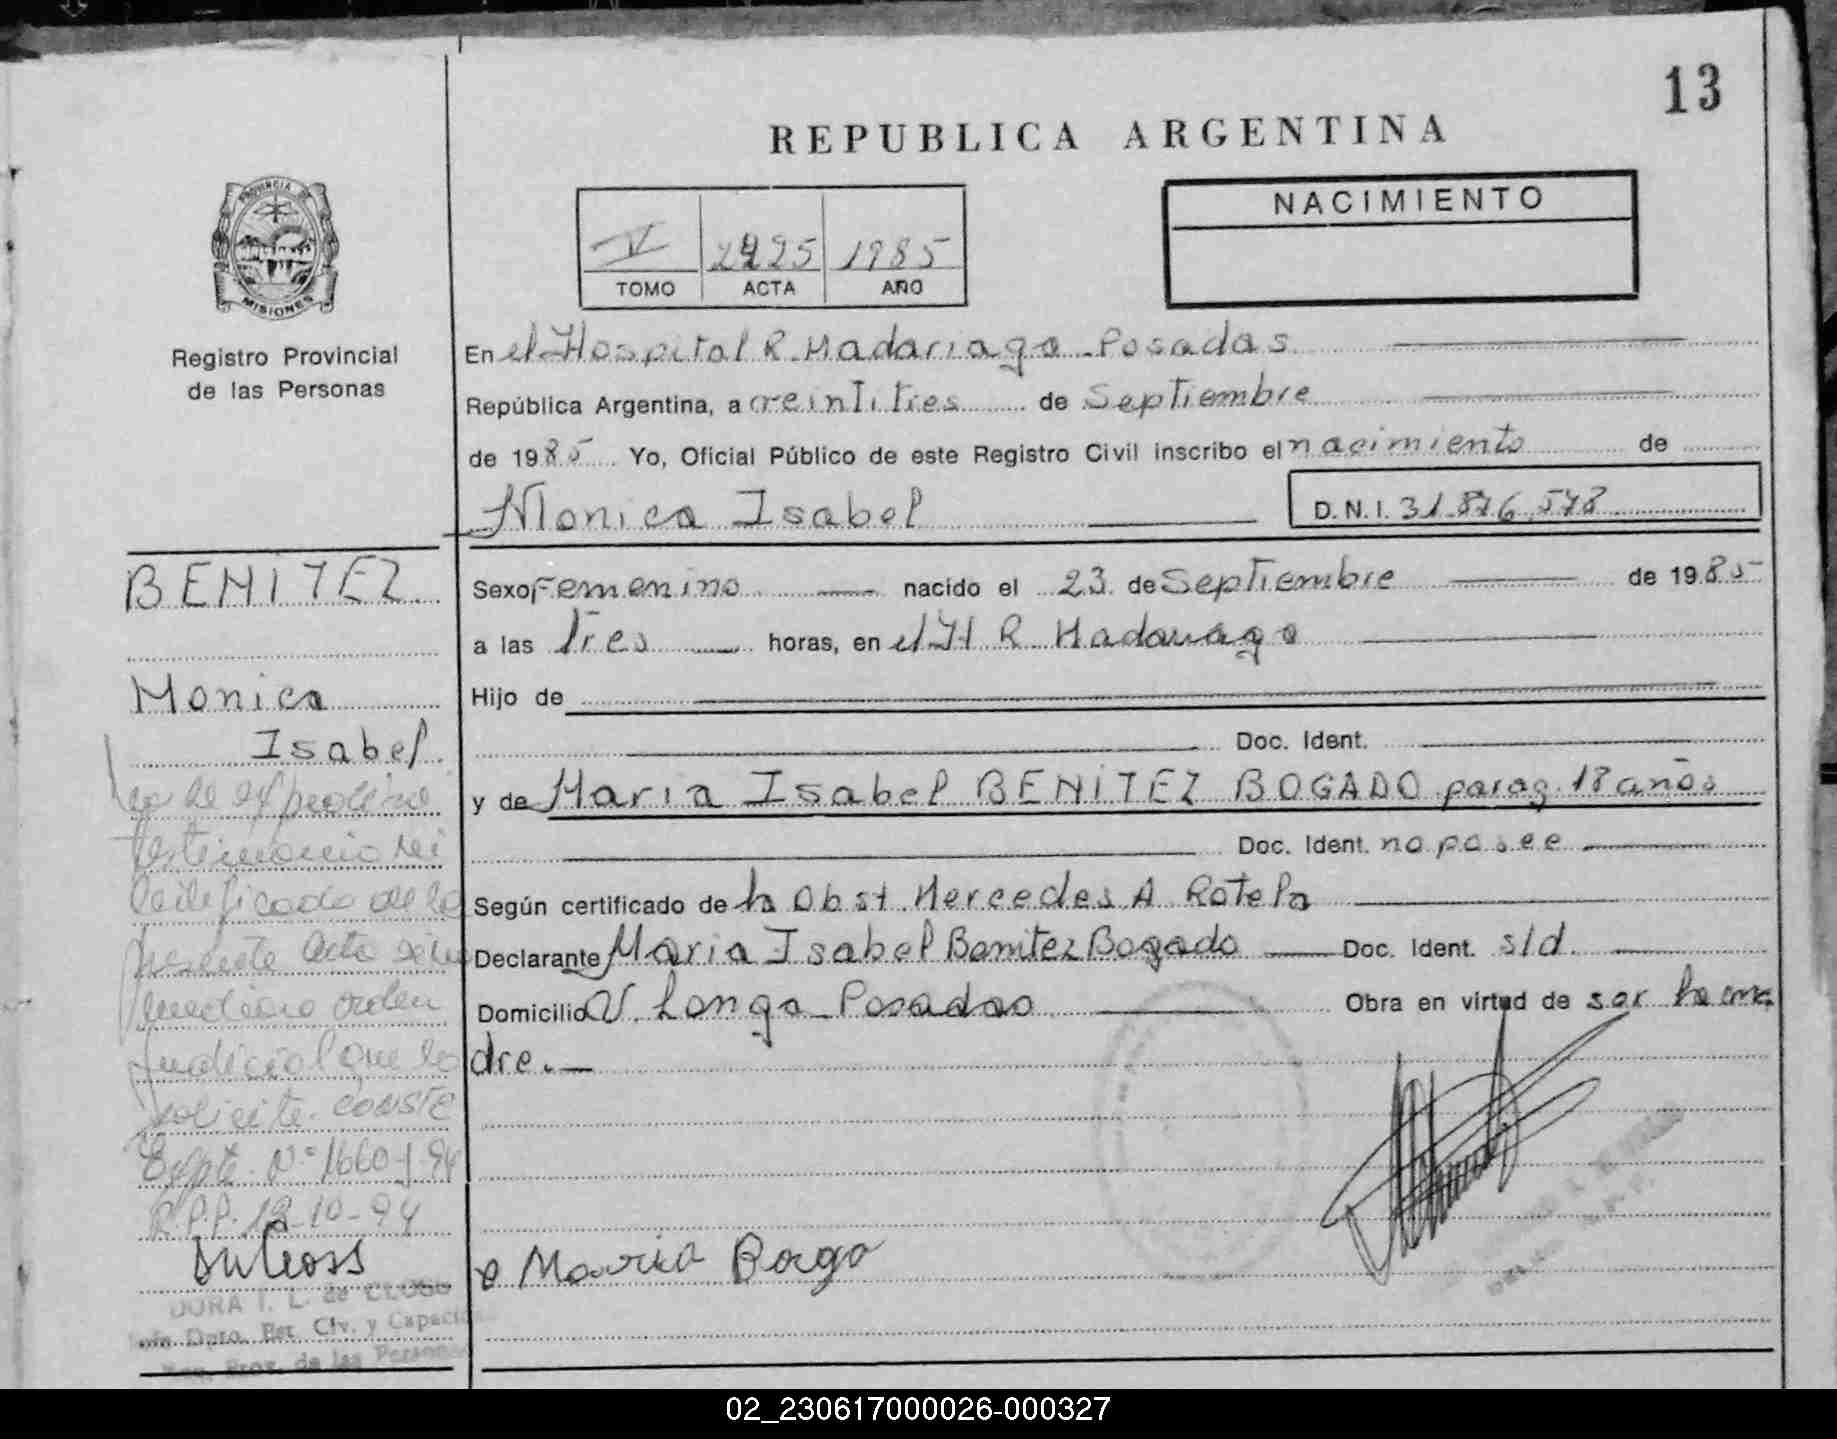 13
REPUBLICA ARGENTINA
PROVINCIA DE
MISIONES
Registro Provincial
de las Personas
V 1985
TOMO ACTA AÑO
NACIMIENTO
En el Hospital R. Madariaga - Posadas
República Argentina, a veintitres de Septiembre
de 1985 Yo, Oficial Público de este Registro Civil inscribo el nacimiento de
Monica Isabel D.N.I. 31.876.578
BENITEZ
Monica
Isabel
Sexo Femenino nacido el 23 de Septiembre de 1985
a las Tres horas, en el H R. Madariaga
Hijo de
Doc. Ident.
y de Maria Isabel BENITEZ BOGADO parag. 18 años
Doc. Ident. no posee
Según certificado de la Obst. Mercedes A Rotela
Declarante Maria Isabel Benitez Bogado Doc. Ident. s/d.
Domicilio V. Longa Posadas Obra en virtud de ser la ma
dre.
testimonio ni
certificado de la
presente acta
orden
judicial que lo
solicite. CONSTE
Expte. Nº 1660-J-94
R.P.P. 12-10-94
Maria Boga
DORA I. L. de
Dpto. Est. Civ. y Capaci
Prov. de las Personas
02_230617000026-000327